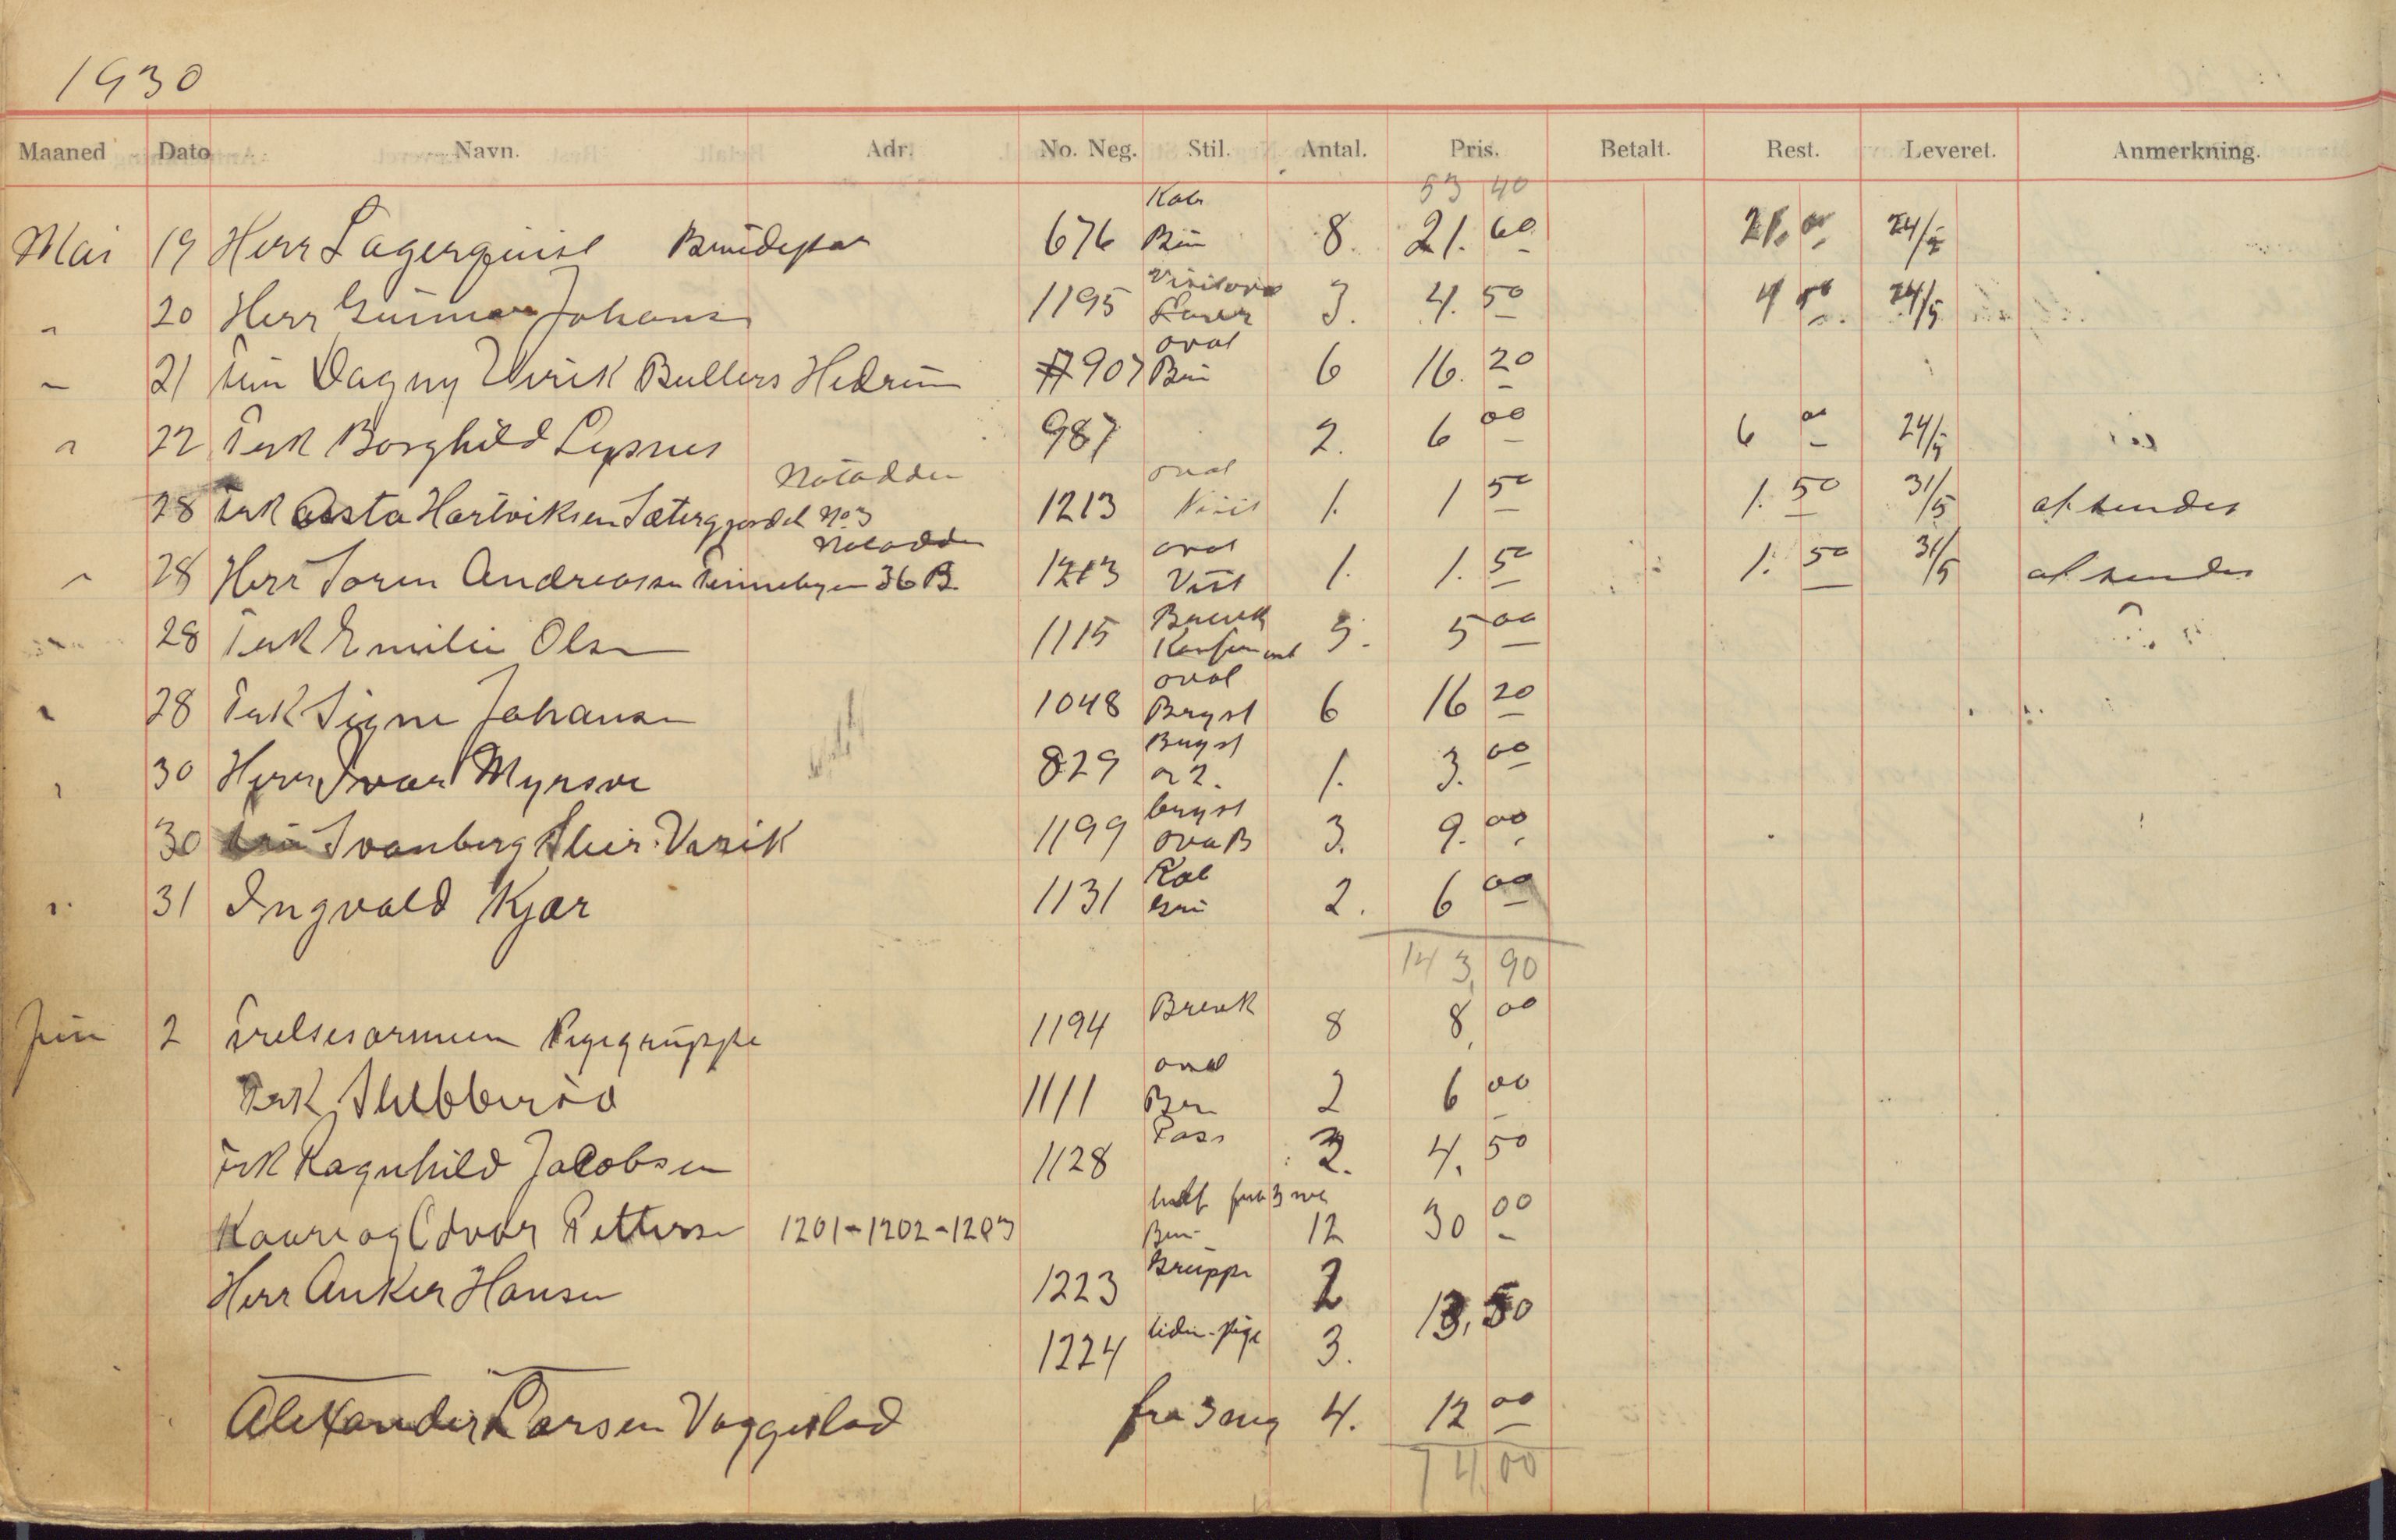 1930
Maaned Dato Navn. Adr. No. Neg. Stil. Antal. Pris. Betalt. Rest. Leveret. Anmerkning.
53 40
Kab
Mai 19 Herr Lagerquist Brudepar 676 8. 21. 60 24/5
20 Herr Gunnar Johans 1195 3. 4. 50 4 50 24/5
oval
21 Dagny Virik Bullers Hedrum 907 6 16. 20
22 Frk Borghild Lysnes 987 2. 6 00 6 00 24/5
Notodden oval
28 Frk Aasta Hartviksen Sætergjordet No 3 1213 Visit 1. 1 50 1. 50 31/5 afsendes
Notodden oval
28 Herr Soren Andreassen 36 B. 1213 Visit 1. 1. 50 1. 50 31/5 afsendes
28 Frk Emilie Olsen 1115 5. 5 00
oval
28 Frk Signe Johansen 1048 Bryst 6 16 20
Bryst
30 Herr Ivar Myrson 829 1. 3. 00
bryst
30 Svanberg Virik 1199 3. 9. 00
Kab
31 Ingvald Kjær 1131 2. 6 00
143,90
Brevk
Juni 2 Frelsesarmeen Pigegruppe 1194 8 8, 00
oval
Frk 1111 2 6 00
Pass
Frk Ragnhild Jacobsen 1128 3. 4. 50
fra 3 neg
Kaare og Odvar Pettersen 1201-1202-1203 12 30 00
Gruppe
Herr Anker Hansen 1223 2 13,50
1224 3.
Alexander Larsen Vaggestad fra 3 neg 4. 12 00
74,00